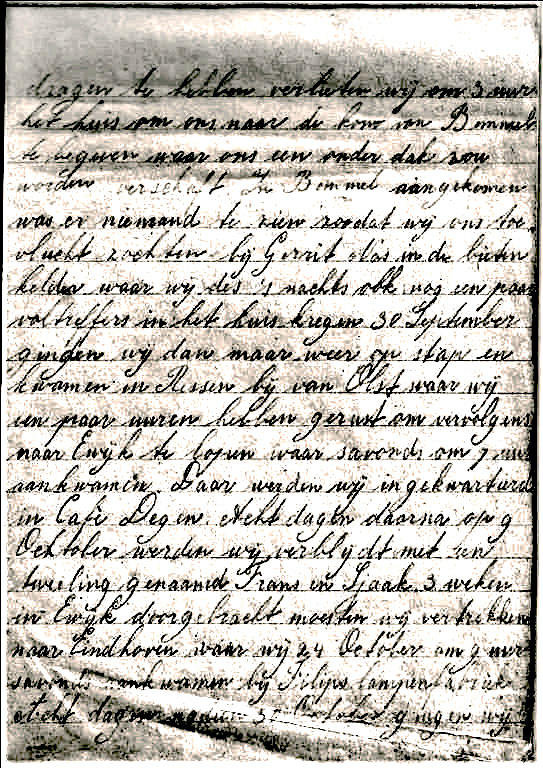 dragen te hebben verlieten wij om 3 uur
het huis om ons naar de kom van Bemmel
te begeven waar ons een onder dak zou
worden verschaft In Bemmel aangekomen
was er niemand te zien zoodat wij ons toe
vlucht zochten bij Gerrit in de bieten
kelder waar wij des 's nachts ook nog een paar
voltreffers in het huis kregen 30 September
gingen wij dan maar weer op stap en
kwamen in Ressen bij van Olst waar wij
een paar uuren hebben gerust om vervolgens
naar Ewijk te lopen waar savonds om 7 uur
aankwamen. Daar werden wij ingekwartierd
in Café Degen. Acht dagen daarna op 9
October werden wij verblijdt met een
tweeling genaamd Frans en Sjaak. 3 weken
in Ewijk doorgebracht moesten wij vertrekken
naar Eindhoven waar wij 24 October om 9 uur
savonds aankwamen bij Filips lampenfabriek
Acht dagen 30 October gingen wij